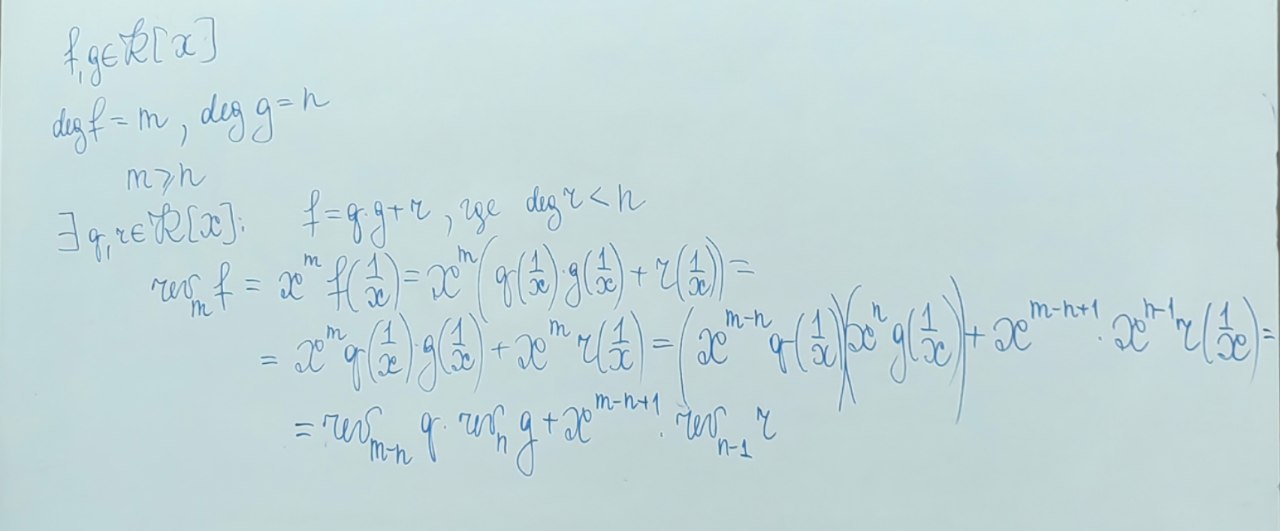 f, g ∈ 𝕜[x]
deg f = m, deg g = n
m ⩾ n
∃ q, r ∈ 𝕜[x]: f = q·g + r, где deg r < n
rev_m f = x^m f(1/x) = x^m (q(1/x)·g(1/x) + r(1/x)) =
= x^m q(1/x)·g(1/x) + x^m r(1/x) = (x^{m-n} q(1/x))(x^n g(1/x)) + x^{m-n+1} · x^{n-1} r(1/x) =
= rev_{m-n} q · rev_n g + x^{m-n+1} · rev_{n-1} r